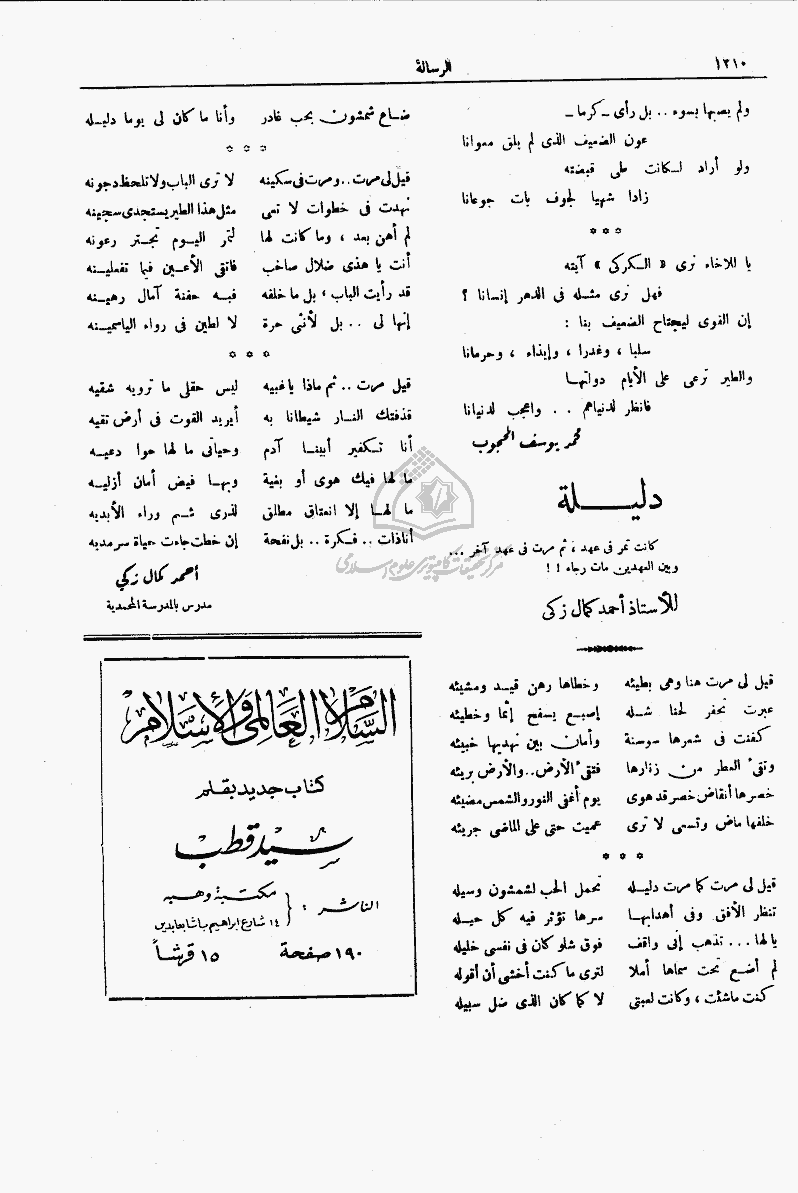 ١٢١٠
الرسالة
ولم يصبها بسوء .. بل رأى ـ كرما ـ
عون الضعيف الذى لم يلق معوانا
ولو أراد لكانت طى قبضته
زادا شهيا لجوف بات جوعانا
* * *
يا للاخاء نرى « الكركى » آيته
فهل نرى مثله فى الدهر إنسانا ؟
إن القوى ليجتاح الضعيف بنا :
سلبا ، وغدرا ، وإيذاء ، وحرمانا
والطير ترعى على الأيام دولتها
فانظر لدنياهم .. واعجب لدنيانا
محمد يوسف المحجوب
دليلة
كانت تمر فى عهد ، ثم مرت فى عهد آخر ...
وبين العهدين مات رجاء ! !
للأستاذ أحمد كمال زكى
قيل لى مرت هنا وهى بطيئه وخطاها رهن قيد ومشيئه
عبرت تحفر لحنا شله إصبع يسفح إثما وخطيئه
كفنت فى شعرها سوسنة وأمان بين نهديها خبيئه
وتقىء العطر من زنارها فتقىء الأرض .. والأرض بريئه
خصرها أنقاض خصر قد هوى يوم أغفى النور والشمس مضيئه
خلفها ماض وتسعى لا ترى عميت حتى على الماضى جريئه
* * *
قيل لى مرت كما مرت دليله تحمل الحب لشمشون وسيله
تنظر الأفق وفى أهدابها سرها تؤثر فيه كل حيله
يا لها ... تذهب إنى واقف فوق شلو كان فى نفسى خليله
لم أضع تحت سماها أملا لترى ما كنت أخشى أن أقوله
كنت ماشئت ، وكانت لعبتى لا كما كان الذى ضل سبيله
ضاع شمشون بحب غادر وأنا ما كان لى يوما دليله
* * *
قيل لى مرت .. ومرت فى سكينه لا ترى الباب ولا تلحظ دجونه
نهدت فى خطوات لا تعى مثل هذا الطير يستجدى سجينه
لم أهن بعد ، وما كانت لها لتمر اليوم تجتر رعونه
أنت يا هذى ضلال صاخب فاتقى الأعين فيما تفعلينه
قد رأيت الباب ، بل ما خلفه فبه حفنة آمال رهينه
إنها لى .. بل لأنثى حرة لا لطين فى رواء الياسمينه
* * *
قيل مرت .. ثم ماذا يا غبيه ليس حقلى ما ترويه شقيه
قذفتك النار شيطانا به أيريد القوت فى أرض تقيه
أنا تكفير أبينا آدم وحياتى ما لها حوا دعيه
ما لها فيك هوى أو بغية وبها فيض أمان أزليه
ما لها إلا انعتاق مطلق لذرى شم وراء الأبديه
أناذات .. فكرة .. بل نفحة إن خطت جاءت حياة سرمديه
أحمد كمال زكي
مدرس بالمدرسة المحمدية
السلام العالمى والإسلام
كتاب جديد بقلم
سيد قطب
الناشر : مكتبة وهبه
١٤ شارع ابراهيم باشا عابدين
١٩٠ صفحة ١٥ قرشاً
مركز تحقيقات كامپيوترى علوم اسلامى